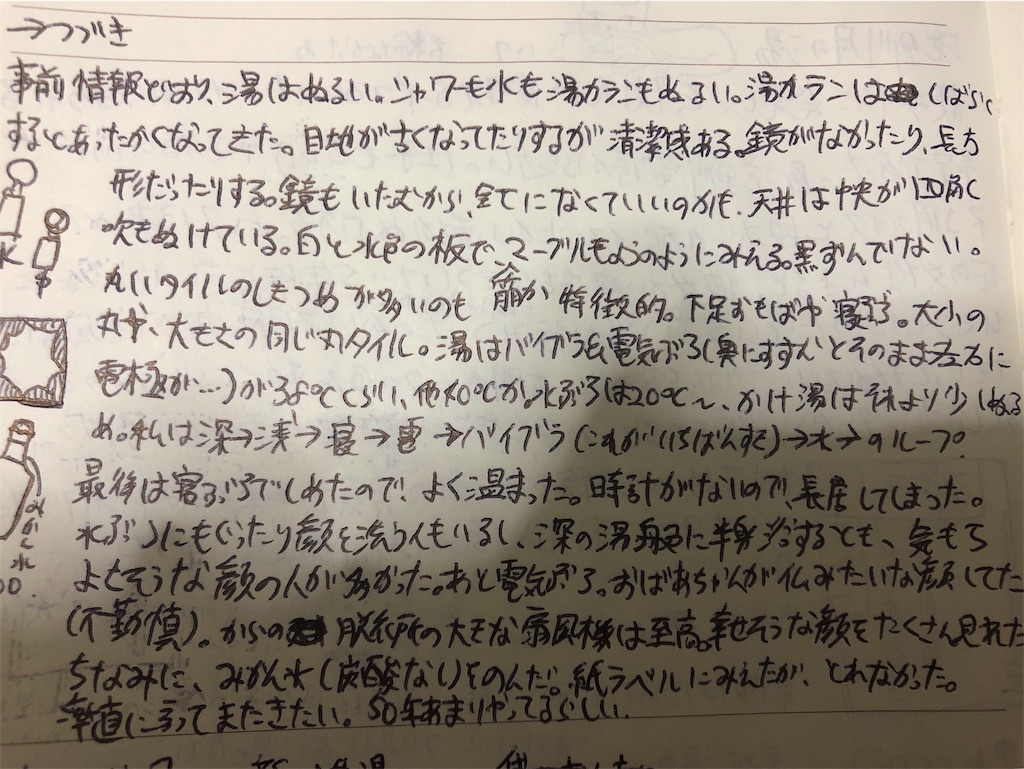 →つづき
事前情報どおり、湯はぬるい。シャワーも水も湯カランもぬるい。湯カランはしばらく
するとあったかくなってきた。目地が古くなってたりするが清潔感ある。鏡がなかったり、長方
形だったりする。鏡もいたむから、全てになくていいのかも。天井は中央が四角く
吹きぬけている。白と水色の板で、マーブルもようのようにみえる。黒ずんでない。
丸いタイルのしきつめが多いのも特徴的。下足おもばや寝ぶろ。大小の
丸や、大きさの同じ丸タイル。湯はバイブラと電気ぶろ(奥にすすむとそのまま左右に
電極が…)が℃くらい、他40℃か。水ぶろは20℃〜、かけ湯はそれより少しぬる
め。私は深→浅→寝→電→バイブラ(これがいちばんすき)→水→のループ。
最後は寝ぶろでしめたので、よく温まった。時計がないので、長居してしまった。
水ぶろにもぐったり顔を洗う人もいるし、深の湯船に半身浴するとも、気もち
よさそうな顔の人が多かった。あと電気ぶろ。おばあちゃんが仏みたいな顔してた
(不謹慎)。からの脱衣所の大きな扇風機は至高。幸せそうな顔をたくさん見れた
ちなみに、みかん水(炭酸なし)をのんだ。紙ラベルにみえたが、とれなかった。
率直に言ってまたきたい。50年あまりやってるらしい。
水
みかん水